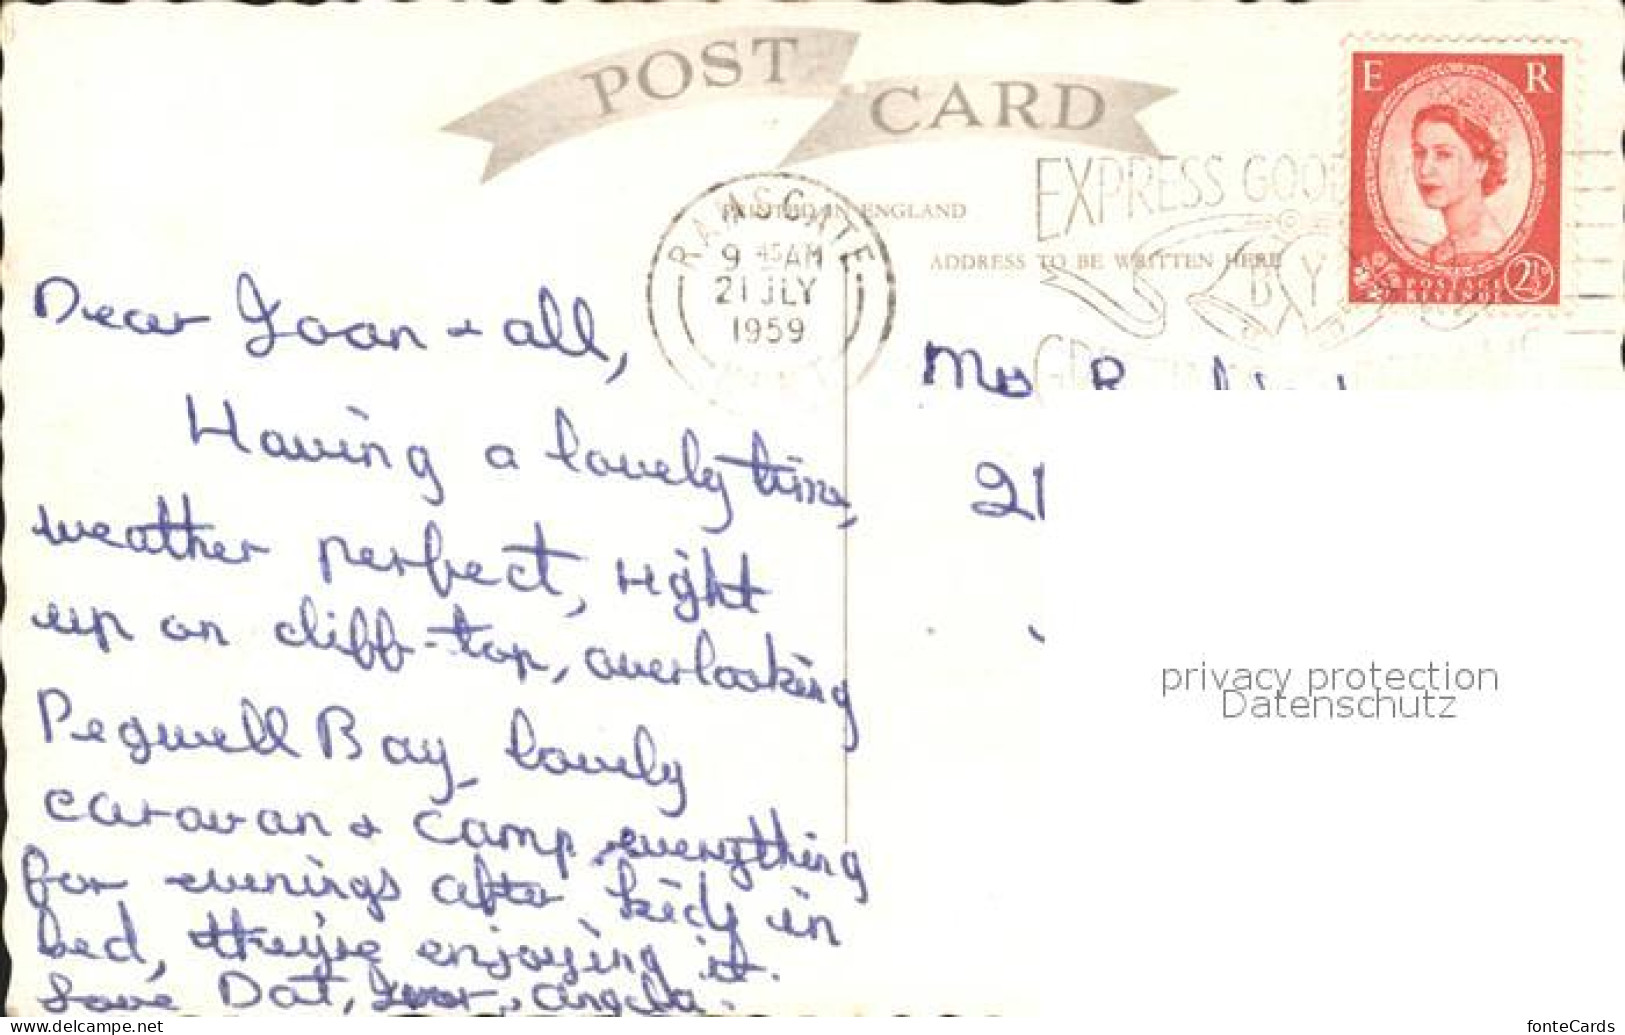 POST CARD
E R
EXPRESS GOOD
PRINTED IN ENGLAND
RAMSGATE
9 45 AM
21 JLY
1959
ADDRESS TO BE WRITTEN HERE
BY
POSTAGE
REVENUE
2½D
Dear Joan + all,
Having a lovely time,
weather perfect, right
up on cliff-top, overlooking
Pegwell Bay, lovely
caravan + camp, everything
for evenings after kids in
bed, they're enjoying it.
Love Dot, Ivor, Angela.
Mrs
21
privacy protection
Datenschutz
delcampe.net
fonteCards